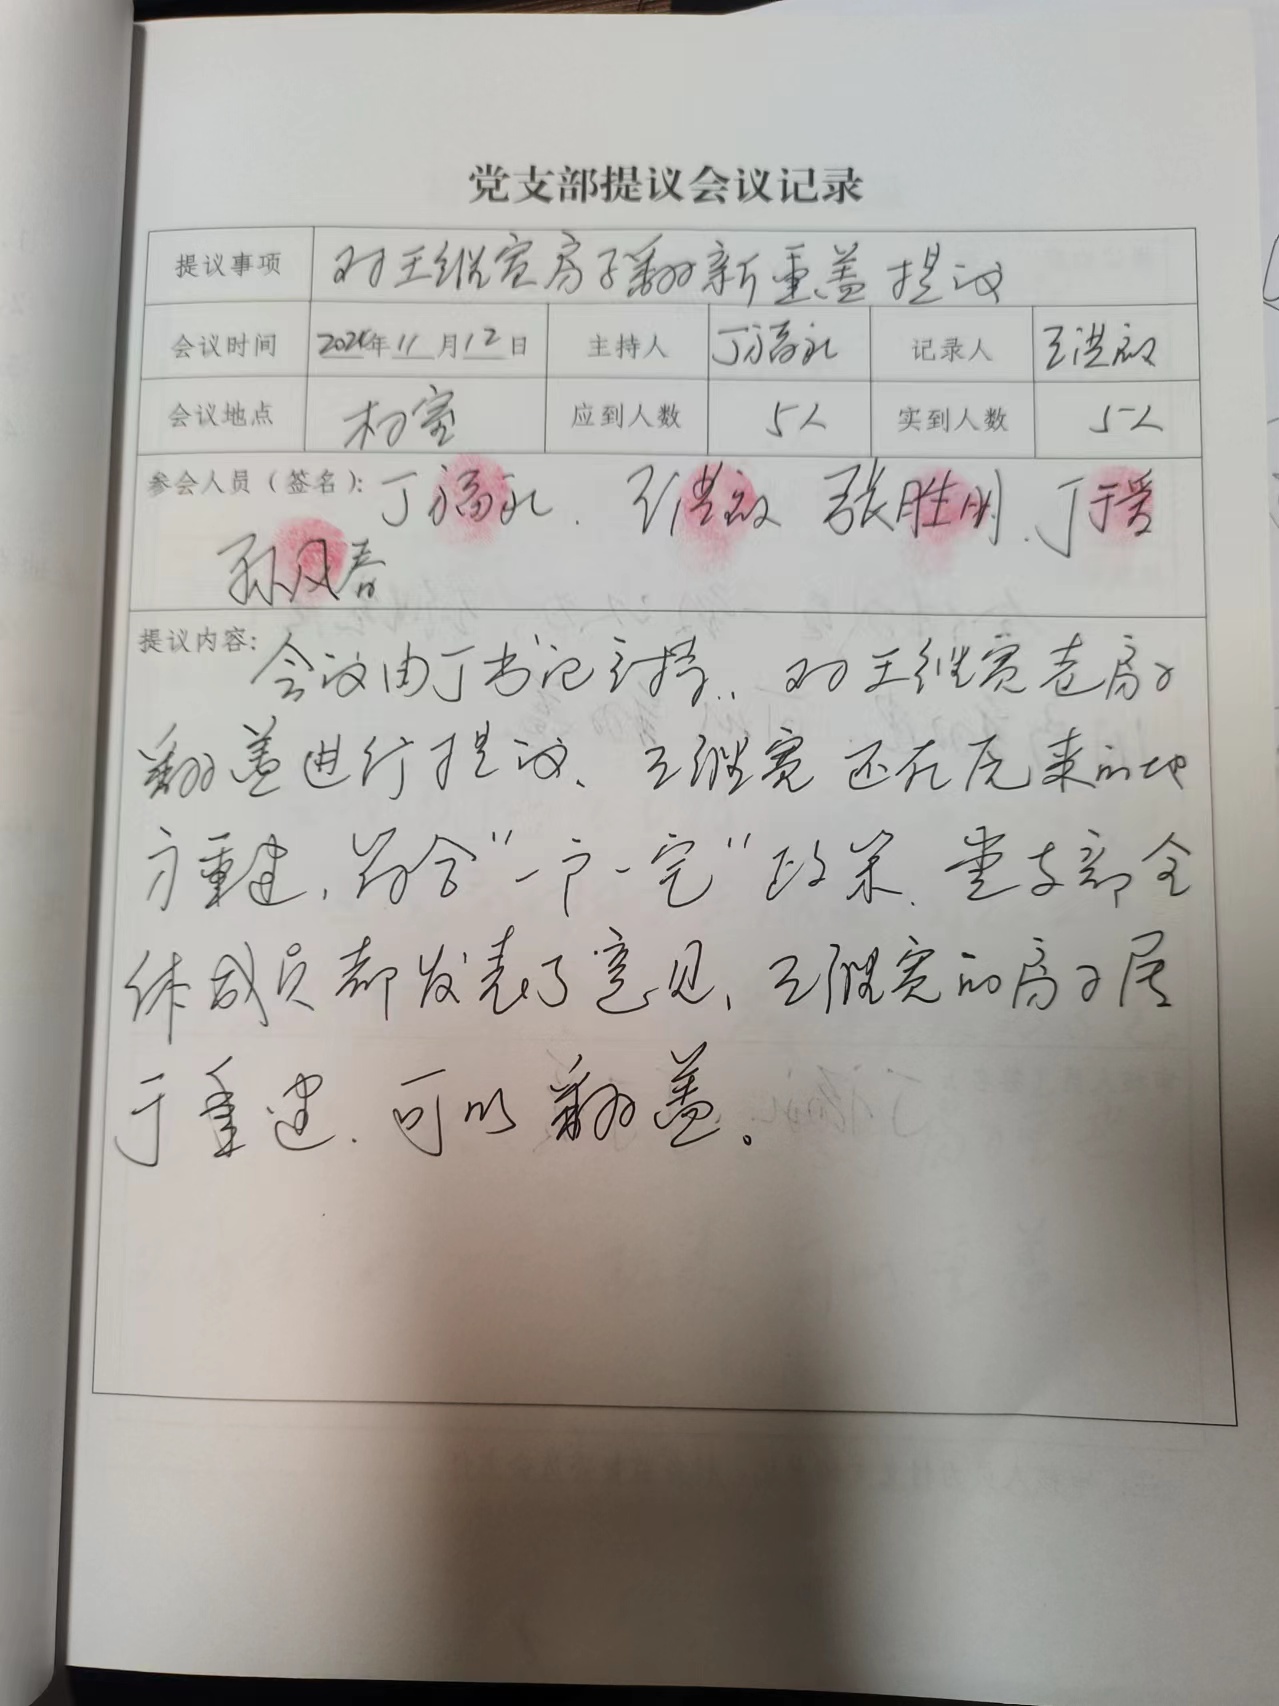 党支部提议会议记录
提议事项 对王继宽房子翻新重盖提议
会议时间 2024年11月12日 主持人 丁福礼 记录人 王洪敏
会议地点 村室 应到人数 5人 实到人数 5人
参会人员（签名）： 丁福礼. 王洪敏 张胜明. 丁于爱
孙风春
提议内容： 会议由丁书记主持.. 对王继宽老房子
翻盖进行提议、王继宽还在原来的地
方重建, 符合"一户一宅"政策. 党支部全
体成员都发表了意见、王继宽的房子居
于重建. 可以翻盖。